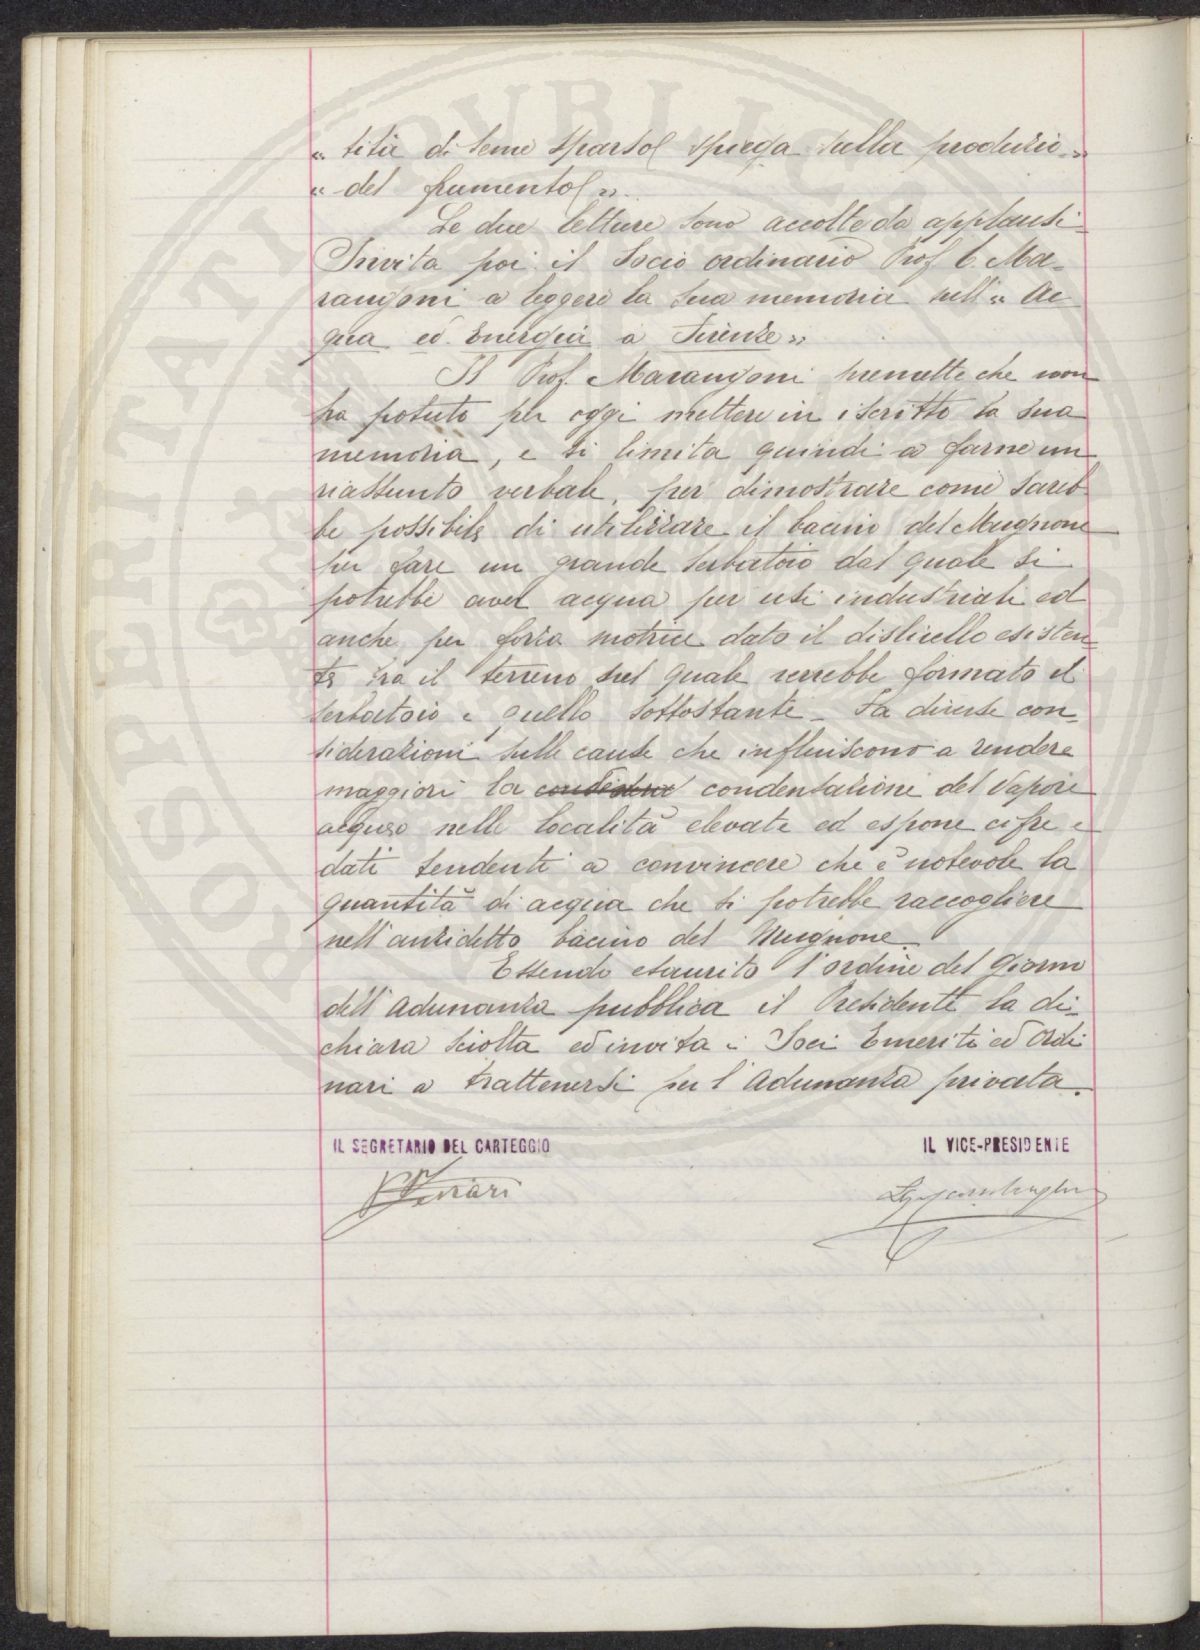 « tità di seme sparso spiega sulla produzio-»
« del frumento ».
Le due letture sono accolte da applausi.
Invita poi il Socio ordinario Prof C. Ma-
rangoni a leggere la sua memoria sull'« Ac
qua ed Energia a Firenze»
Il Prof. Marangoni premette che non
ha potuto per oggi mettere in iscritto la sua
memoria, e si limita quindi a farne un
riassunto verbale, per dimostrare come sareb
be possibile di utilizzare il bacino del Mugnone
per fare un grande serbatoio dal quale si
potrebbe aver acqua per usi industriali ed
anche per forza motrice dato il dislivello esisten-
te tra il terreno sul quale verrebbe formato il
serbatoio e quello sottostante_ Fa diverse con-
siderazioni sulle cause che influiscono a rendere
maggiori la condensazione del Vapore
acqueo nelle località elevate ed espone cifre e
dati tendenti a convincere che è notevole la
quantità di acqua che si potrebbe raccogliere
nell'anzidetto bacino del Mugnone.
Essendo esaurito l'ordine del Giorno
dell'Adunanza pubblica il Presidente la di-
chiara sciolta ed invita i Soci Emeriti ed Ordi
nari a trattenersi per l'Adunanza privata.
IL SEGRETARIO DEL CARTEGGIO
IL VICE-PRESIDENTE
PROSPERITATI PUBLICAE